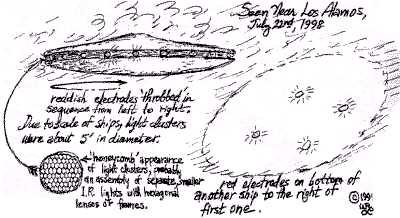 Seen Near Los Alamos,
July 22nd, 1998
reddish electrodes 'throbbed' in
sequence from left to right.
Due to scale of ships, light clusters
were about 5' in diameter.
'honeycomb' appearance
of light clusters, probably
an assembly of separate, smaller
I.R. lights with hexagonal
lenses & frames.
red electrodes on bottom of
another ship to the right of
first one.
©